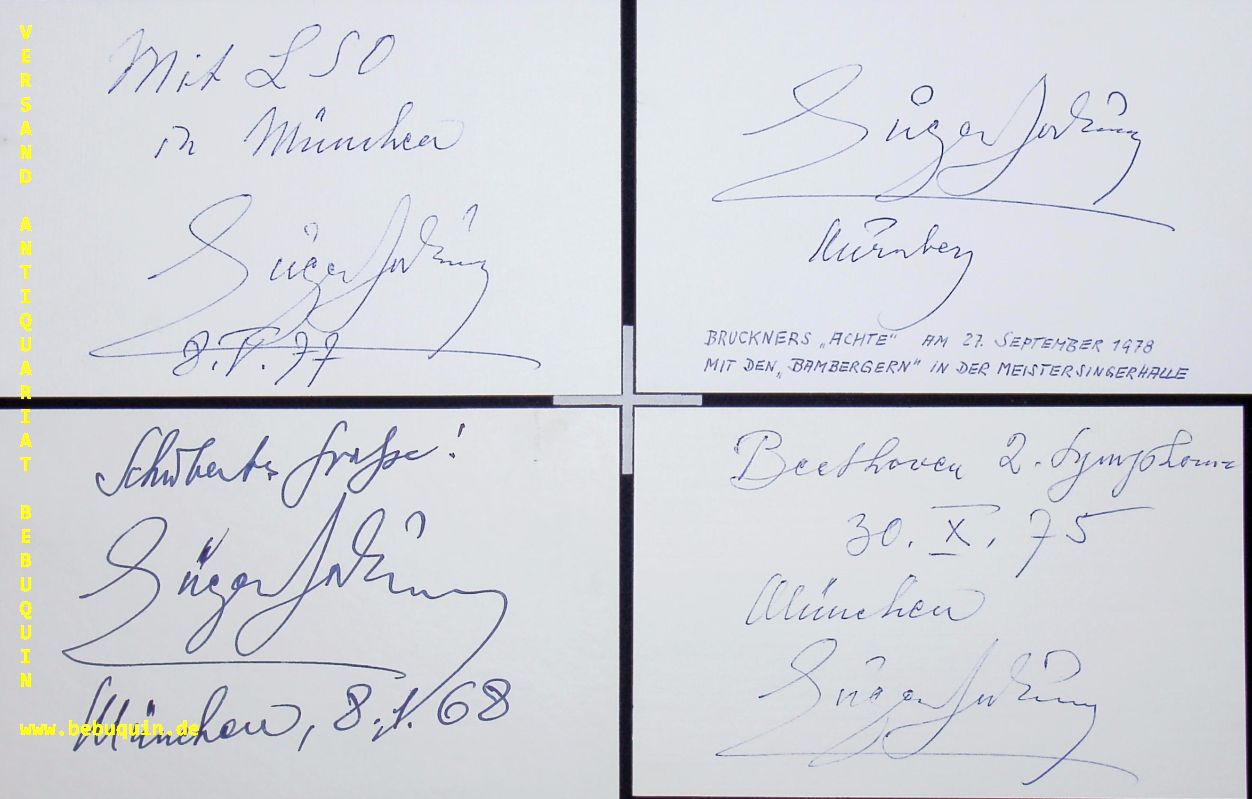 VERSAND ANTIQUARIAT BEBUQUIN
Mit LSO
in München
Eugen Jochum
8. V. 77
Eugen Jochum
Nürnberg
BRUCKNERS „ACHTE" AM 27. SEPTEMBER 1978
MIT DEN „BAMBERGERN" IN DER MEISTERSINGERHALLE
Schuberts große!
Eugen Jochum
München, 8. 1. 68
Beethoven 2. Symphonie
30. X. 75
München
Eugen Jochum
www.bebuquin.de